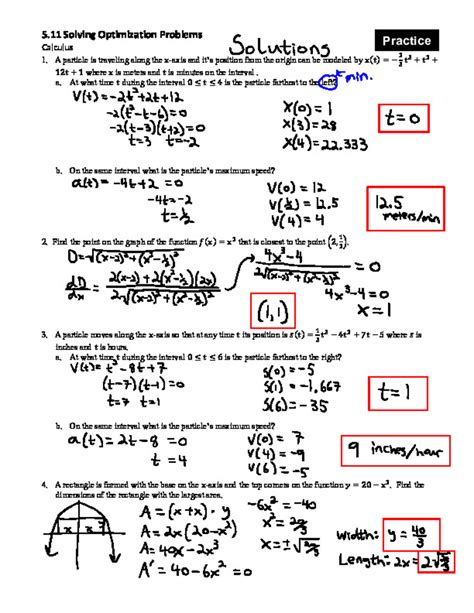 5.11 Solving Optimization Problems
Calculus
Solutions
Practice
1. A particle is traveling along the x-axis and it's position from the origin can be modeled by x(t) = −2/3 t³ + t² +
12t + 1 where x is meters and t is minutes on the interval .
a. At what time t during the interval 0 ≤ t ≤ 4 is the particle furthest to the left?
min.
V(t) = -2t² + 2t + 12
-2(t² - t - 6) = 0
-2(t-3)(t+2) = 0
t=3 t=-2
x(0) = 1
x(3) = 28
x(4) = 22.333
t = 0
b. On the same interval what is the particle's maximum speed?
a(t) = -4t + 2 = 0
-4t = -2
t = 1/2
V(0) = 12
V(1/2) = 12.5
V(4) = 4
12.5
meters/min
2. Find the point on the graph of the function f(x) = x² that is closest to the point (2, 1/2).
D = √((x-2)² + (x²-1/2)²)
dD/dx = (2(x-2) + 2(x²-1/2)(2x)) / (2√((x-2)² + (x²-1/2)²))
(4x³ - 4) / (2√((x-2)² + (x²-1/2)²)) = 0
4x³ - 4 = 0
x = 1
(1,1)
3. A particle moves along the x-axis so that at any time t its position is s(t) = 1/3 t³ − 4t² + 7t − 5 where s is
inches and t is hours.
a. At what time t during the interval 0 ≤ t ≤ 6 is the particle furthest to the right?
V(t) = t² - 8t + 7
(t-7)(t-1) = 0
t=7 t=1
S(0) = -5
S(1) = -1.667
S(6) = -35
t = 1
b. On the same interval what is the particle's maximum speed?
a(t) = 2t - 8 = 0
t = 4
V(0) = 7
V(4) = -9
V(6) = -5
9 inches/hour
4. A rectangle is formed with the base on the x-axis and the top corners on the function y = 20 − x². Find the
dimensions of the rectangle with the largest area.
x x
A = (x+x)·y
A = 2x(20-x²)
A = 40x - 2x³
A' = 40 - 6x² = 0
-6x² = -40
x² = 20/3
x = ±√(20/3)
Width: y = 40/3
Length: 2x = 2√(20/3)